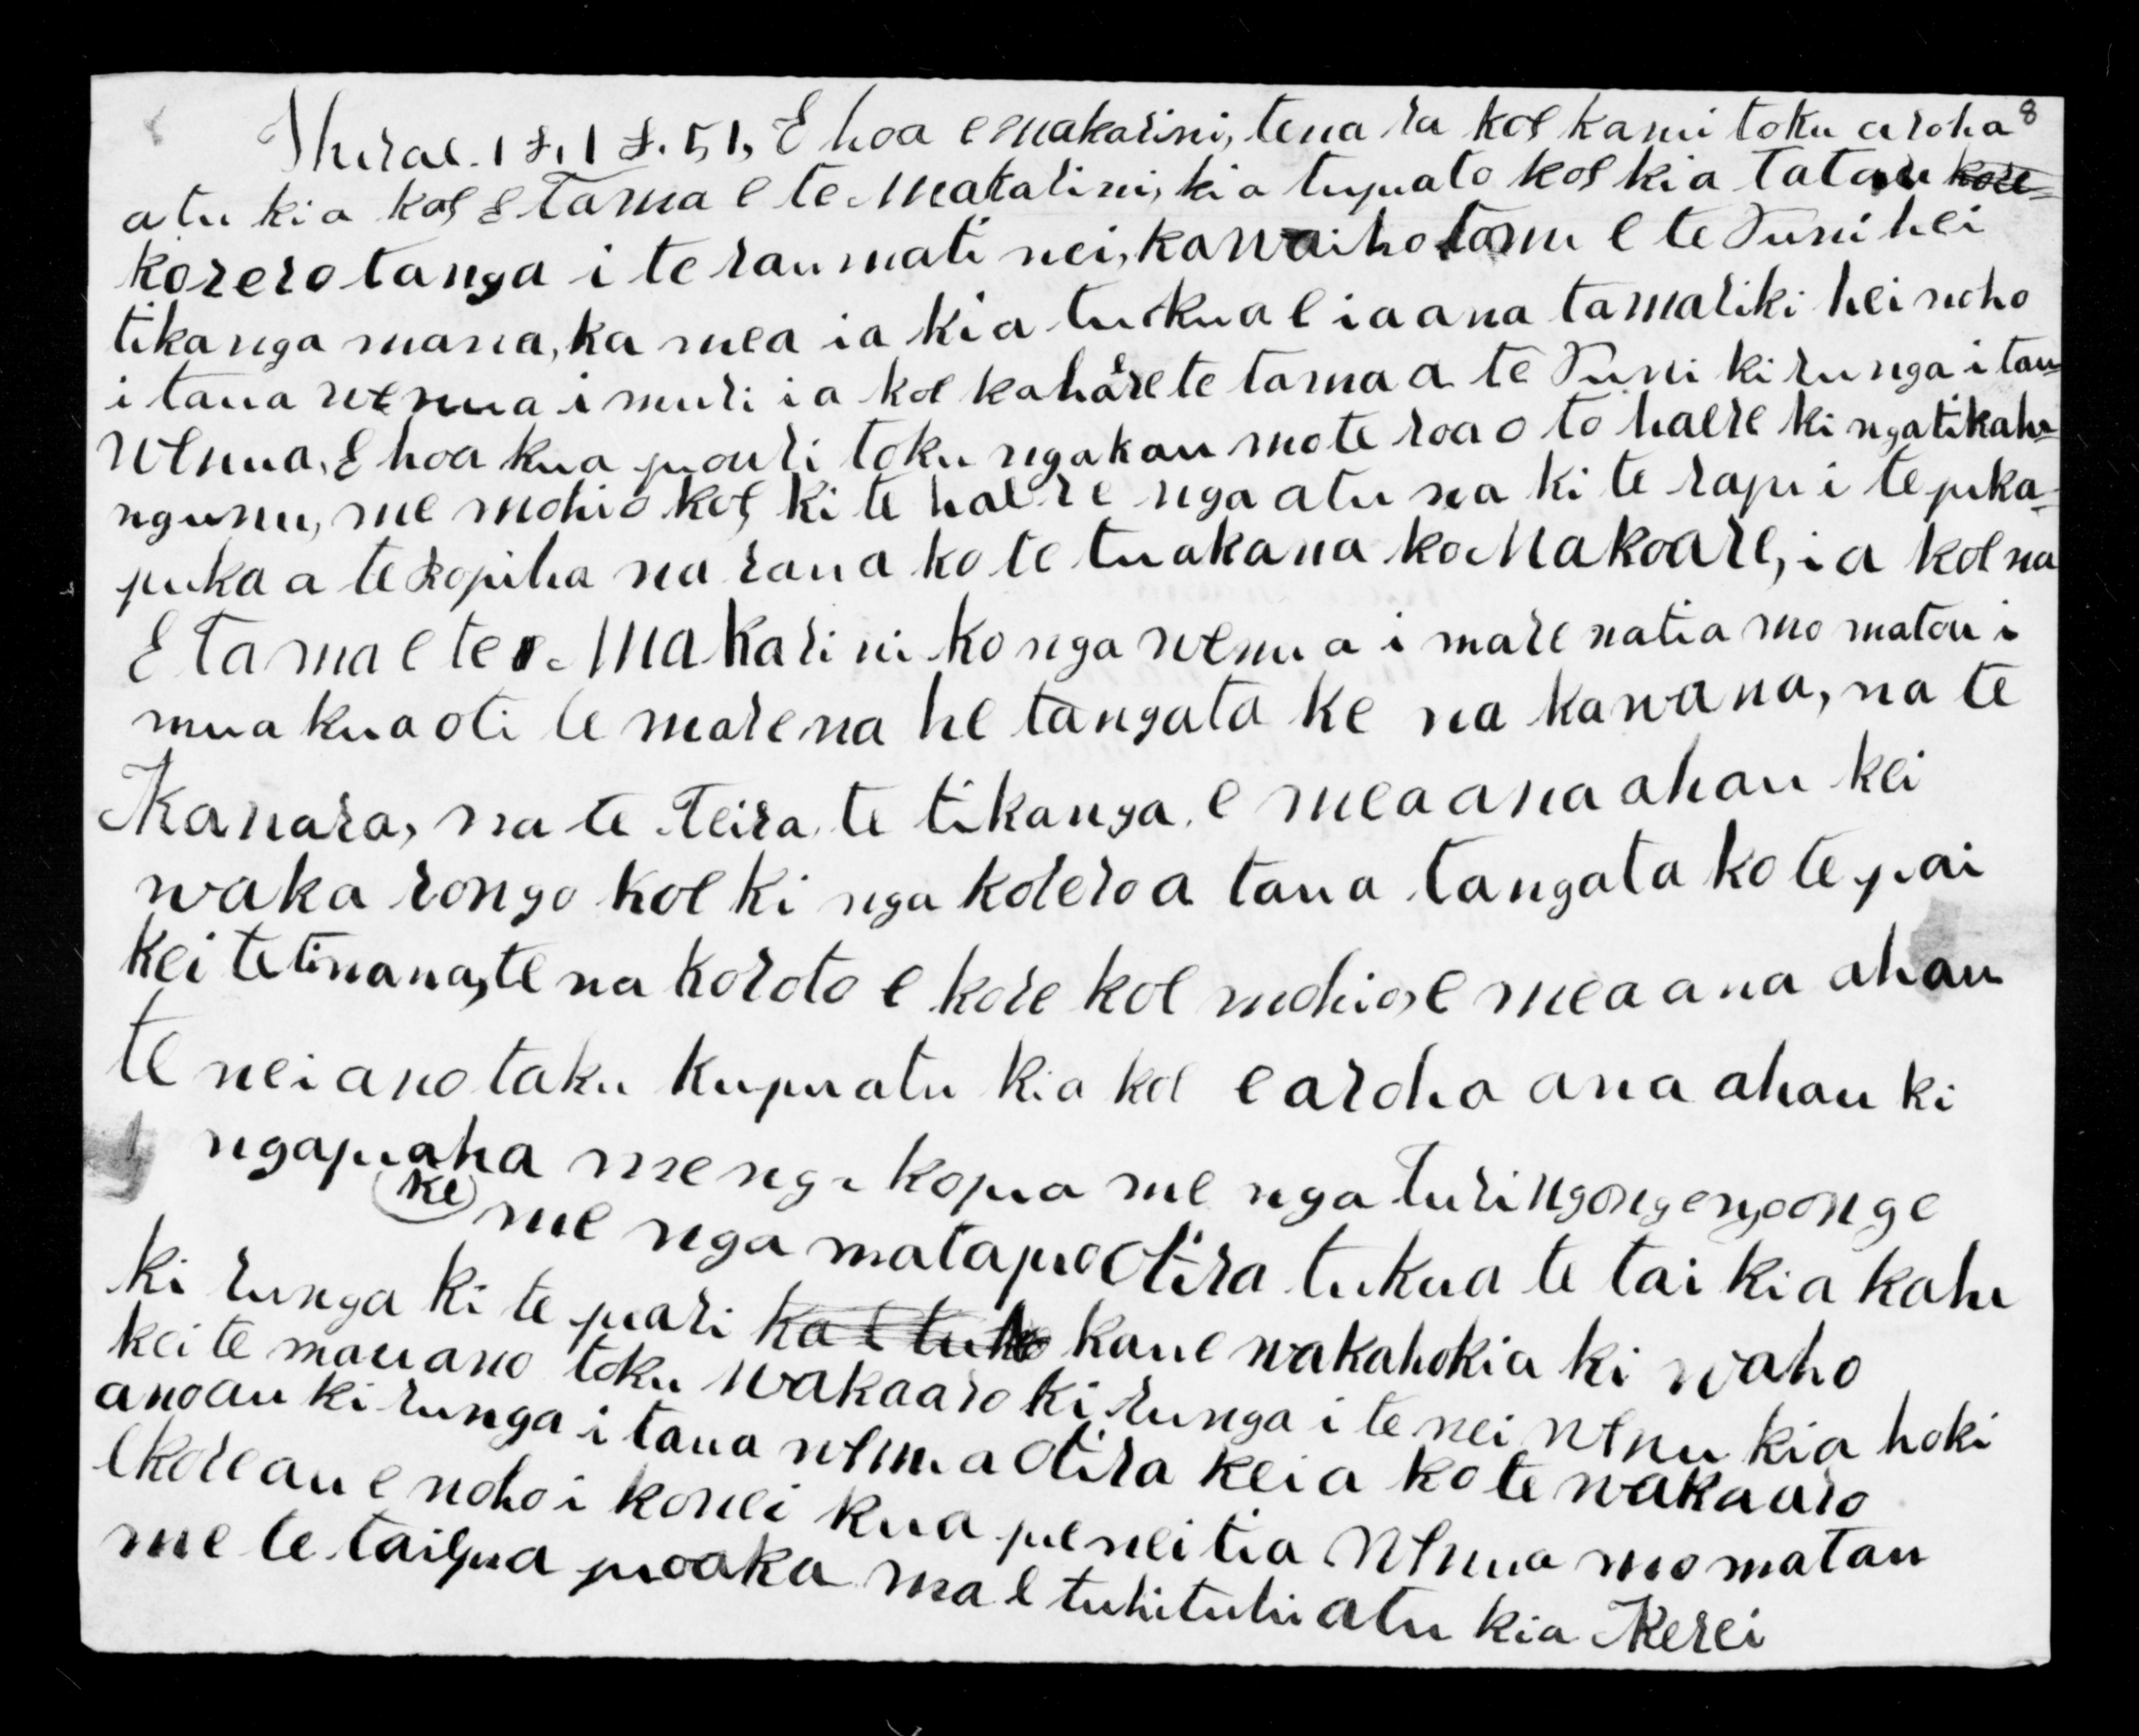 Hurae. 1 8, 1 8. 51, E hoa e makarini, tena ra koe kanui toku aroha 8
atu kia koe E Tama e te Makarini, kia tupato koe kia tatau kore
korerotanga i te raumati nei, ka waiho tonu e te Tuni hei
tikanga mana, ka mea ia kia tukua e ia ana tamariki hei noho
i taua wenua i muri ia koe kahaere te tama a te Tuni ki runga i taua
wenua, E hoa kua pouri toku ngakau mote roa o to haere ki ngatikahu=
ngunu, me mohio koe ki te haere nga atu na ki te rapu i te puka=
puka a te Ropiha na raua ko te tuakana ko Makoare, ia koe na
E tama e te Makarini ko nga wenua i marenatia mo matou i
mua kua oti te marena he tangata ke na kawana, na te
Kanara, na te Teira te tikanga, e mea ana ahau kei
waka rongo koe ki nga korero a taua tangata ko te pai
kei te tinana, tena koroto e kore koe mohio, e mea ana ahau
te nei ano taku kupu atu kia koe e aroha ana ahau ki
ngapuaha me nga kopua me nga turingongengonge
ke me nga matapo Otira tukua te tai kia kahu
ki runga ki te pari ka e tuku kaue wakahokia ki waho
kei te mau ano toku wakaaro ki runga i te nei wenu kia hoki
ano au ki runga i taua wenua Otira keia koe te wakaaro
ekore au e noho i konei kua peneitia wenua mo matau
me te taiepa poaka mae tuhituhi atu kia Kerei